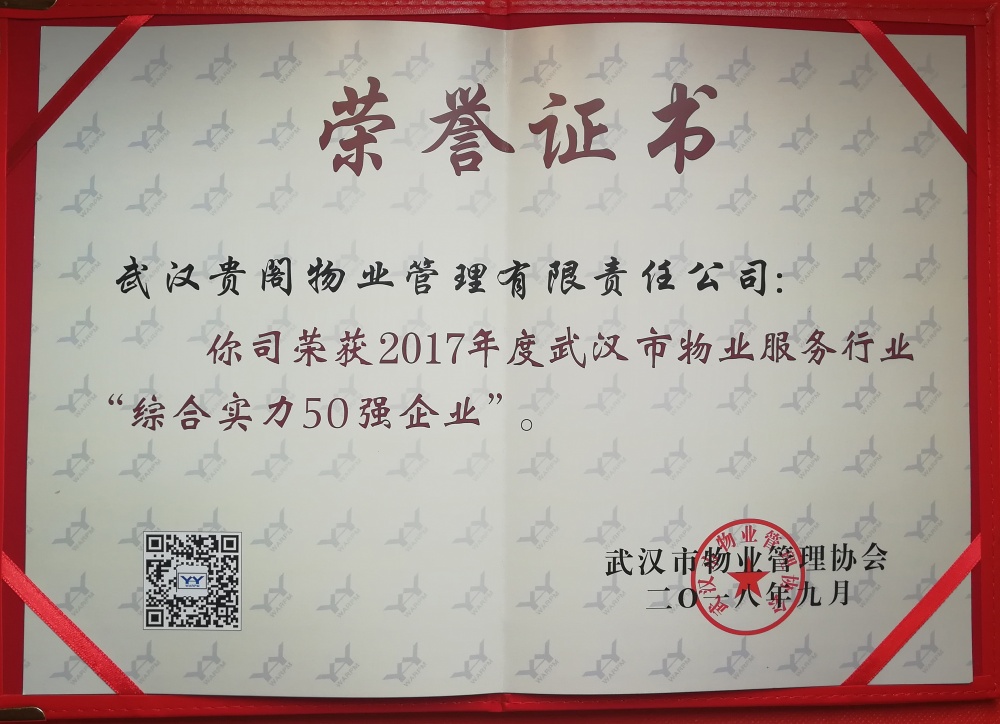 荣誉证书
武汉贵阁物业管理有限责任公司：
你司荣获2017年度武汉市物业服务行业
“综合实力50强企业”。
武汉市物业管理协会
二〇一八年九月
武汉市物业管理协会